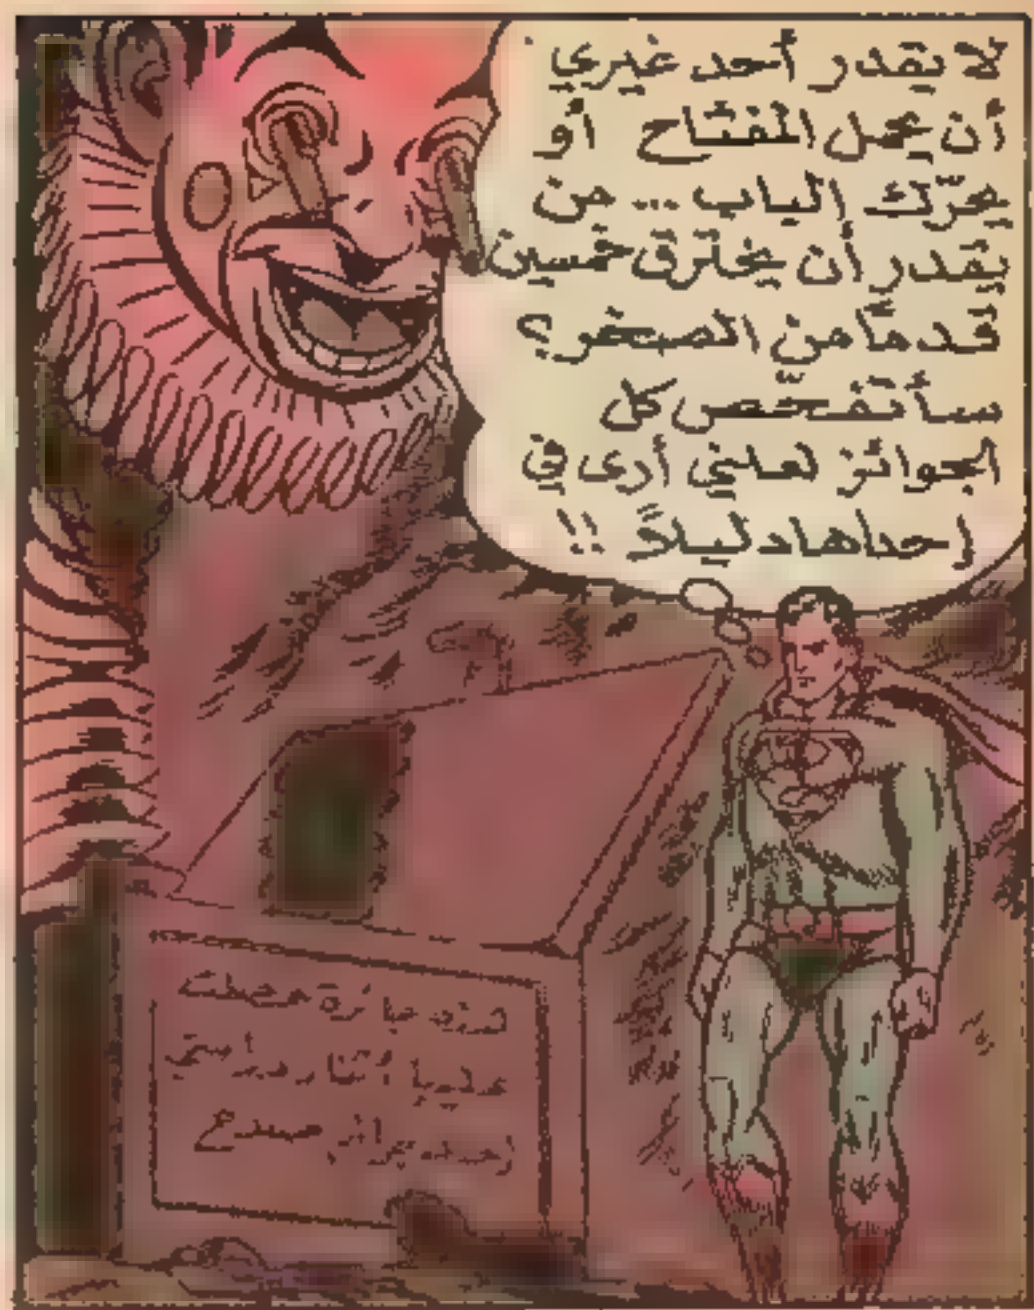 لا يقدر أحد غيري
أن يحمل المفتاح أو
يحرّك الباب ... من
يقدر أن يخترق خمسين
قدماً من الصخر؟
سأتفحّص كل
الجوائز لعلني أرى في
إحداها دليلاً !!
هذه جائزة حصلت
عليها أثناء